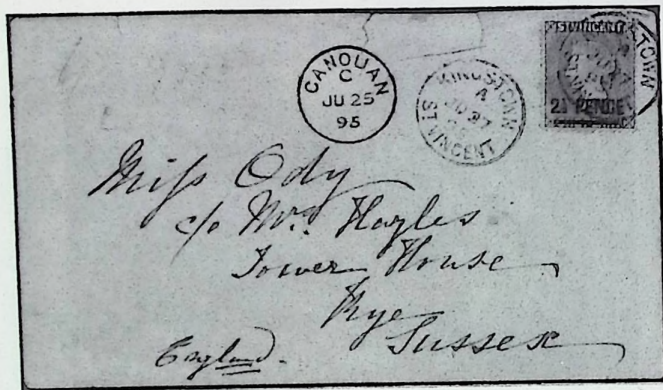 CANOUAN
C
JU 25
95
KINGSTOWN
A
JU 27
95
ST VINCENT
ST VINCENT
2½ PENCE
Miss Ody
c/o Mrs. Hayles
Tower House
Rye
Sussex
England.